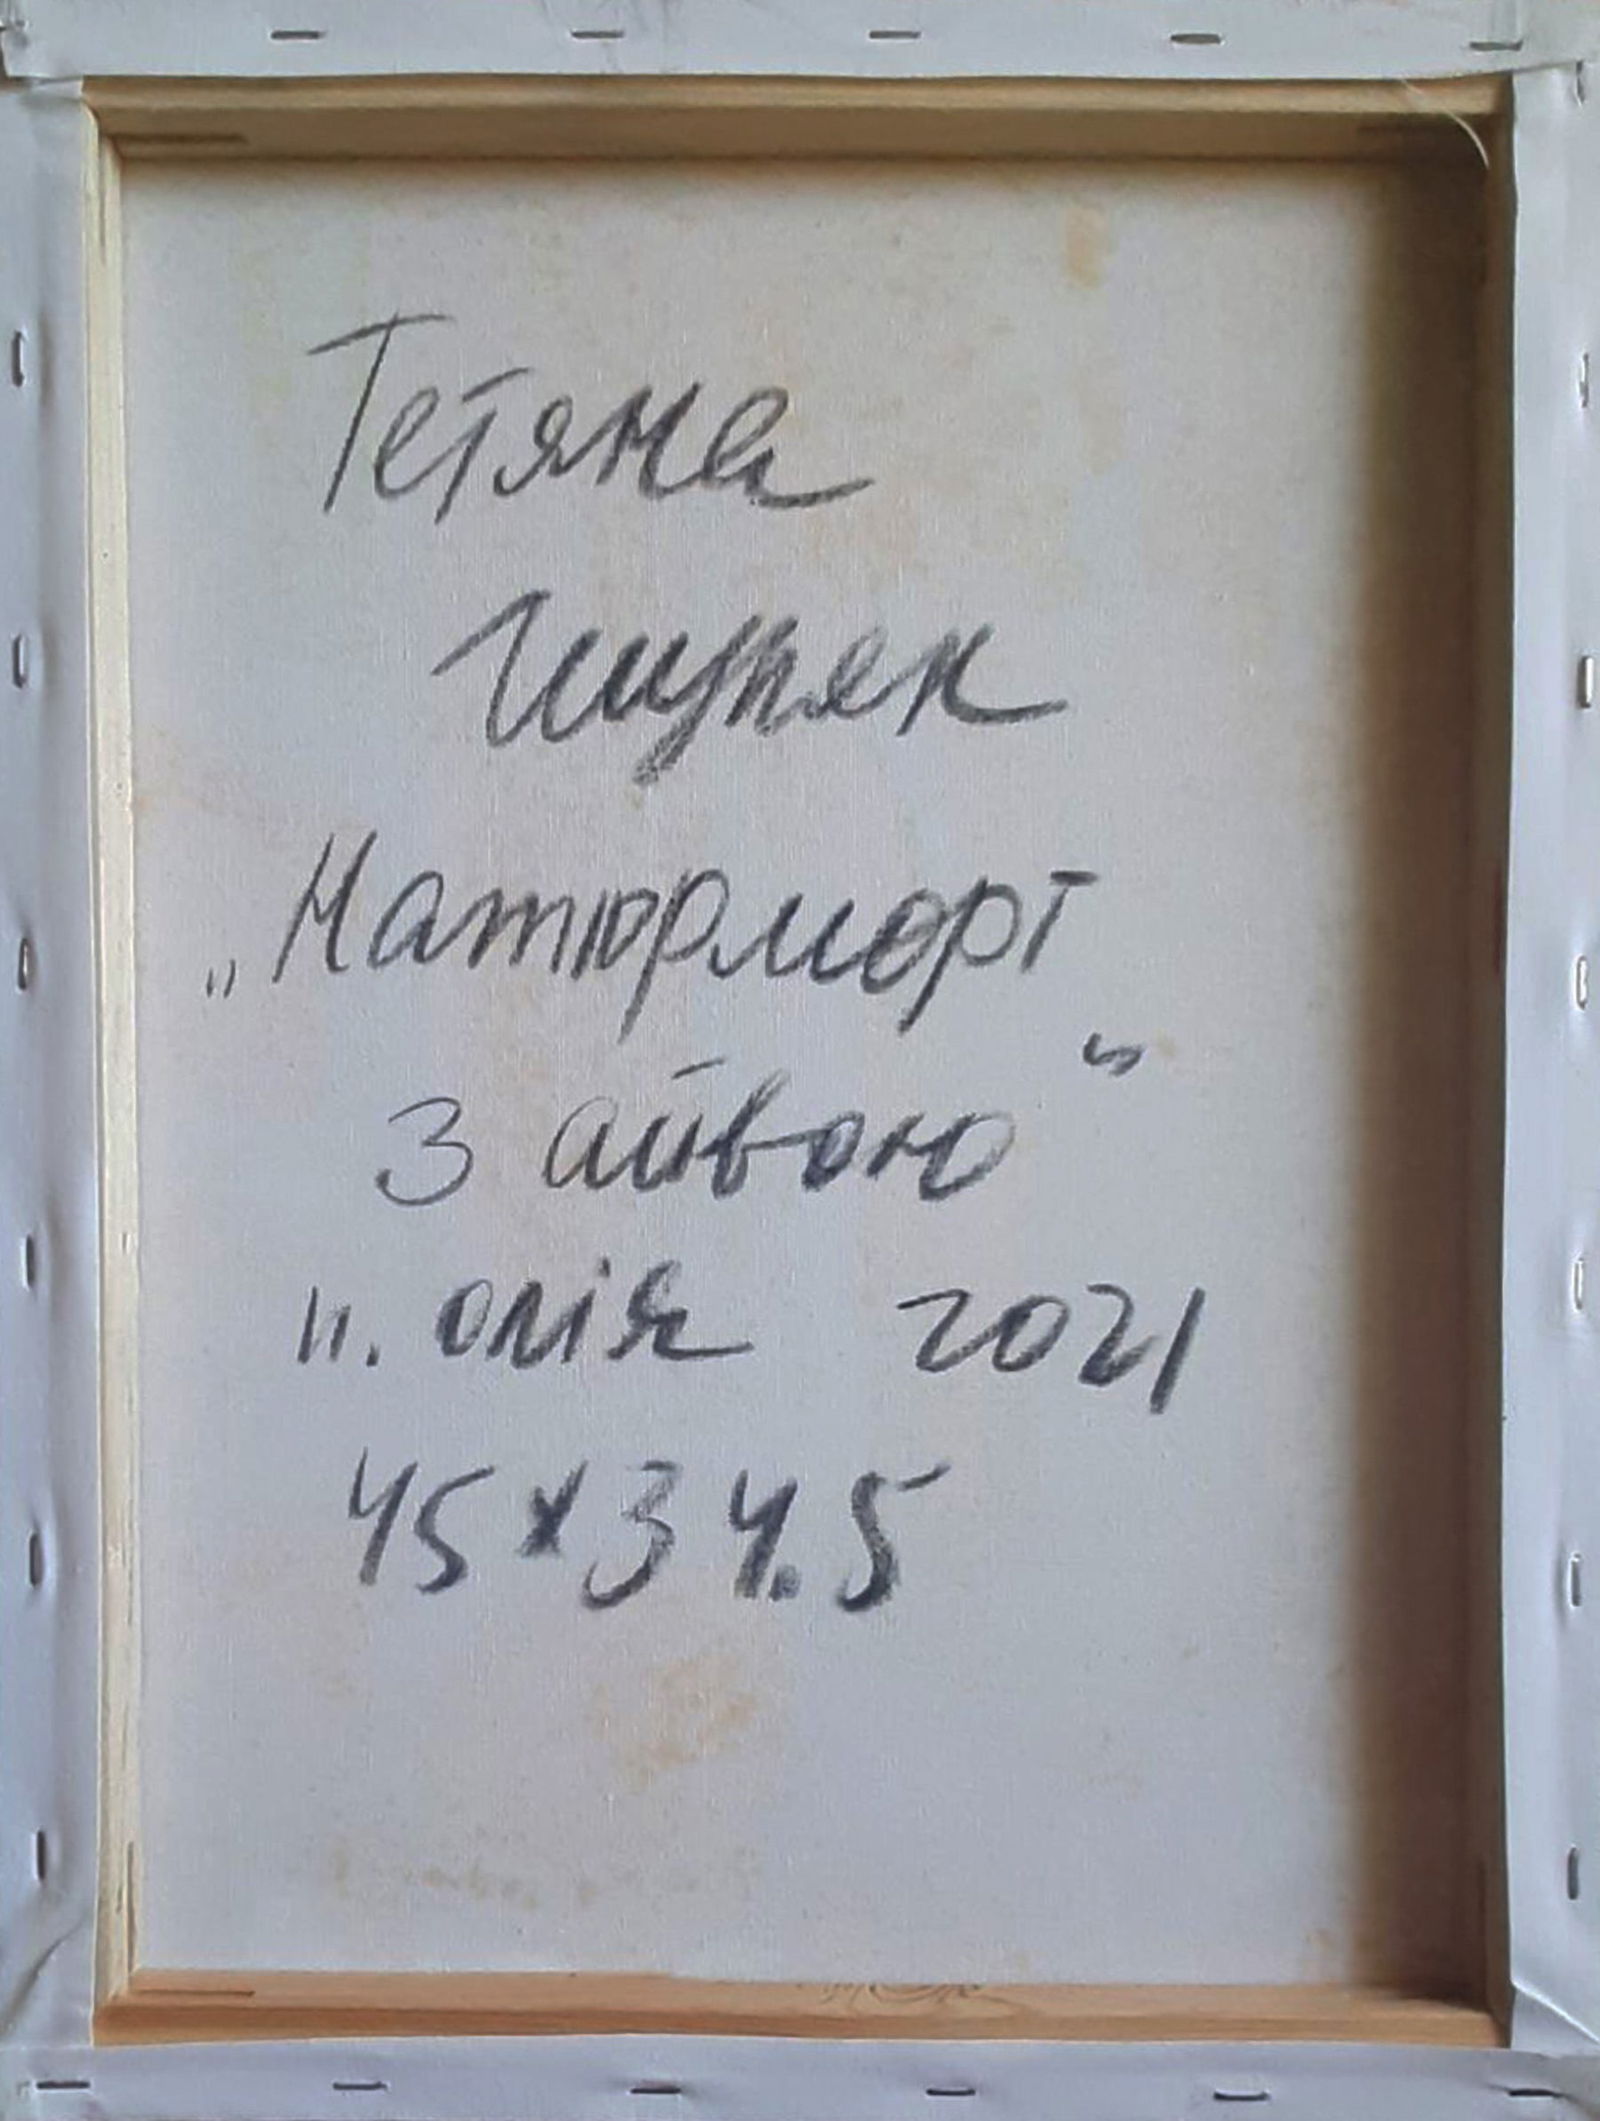 Тетяна
„Натюрморт
з айвою“
п. олія 2021
45x34.5